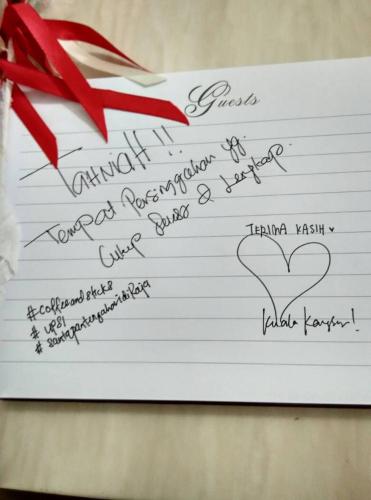 Guests
TAHNIAH!!
Tempat Persinggahan yg.
Cukup Selesa & Lengkap.
TERIMA KASIH
Kuala Kangsar!
#coffeeandsticks
# UPSI
#